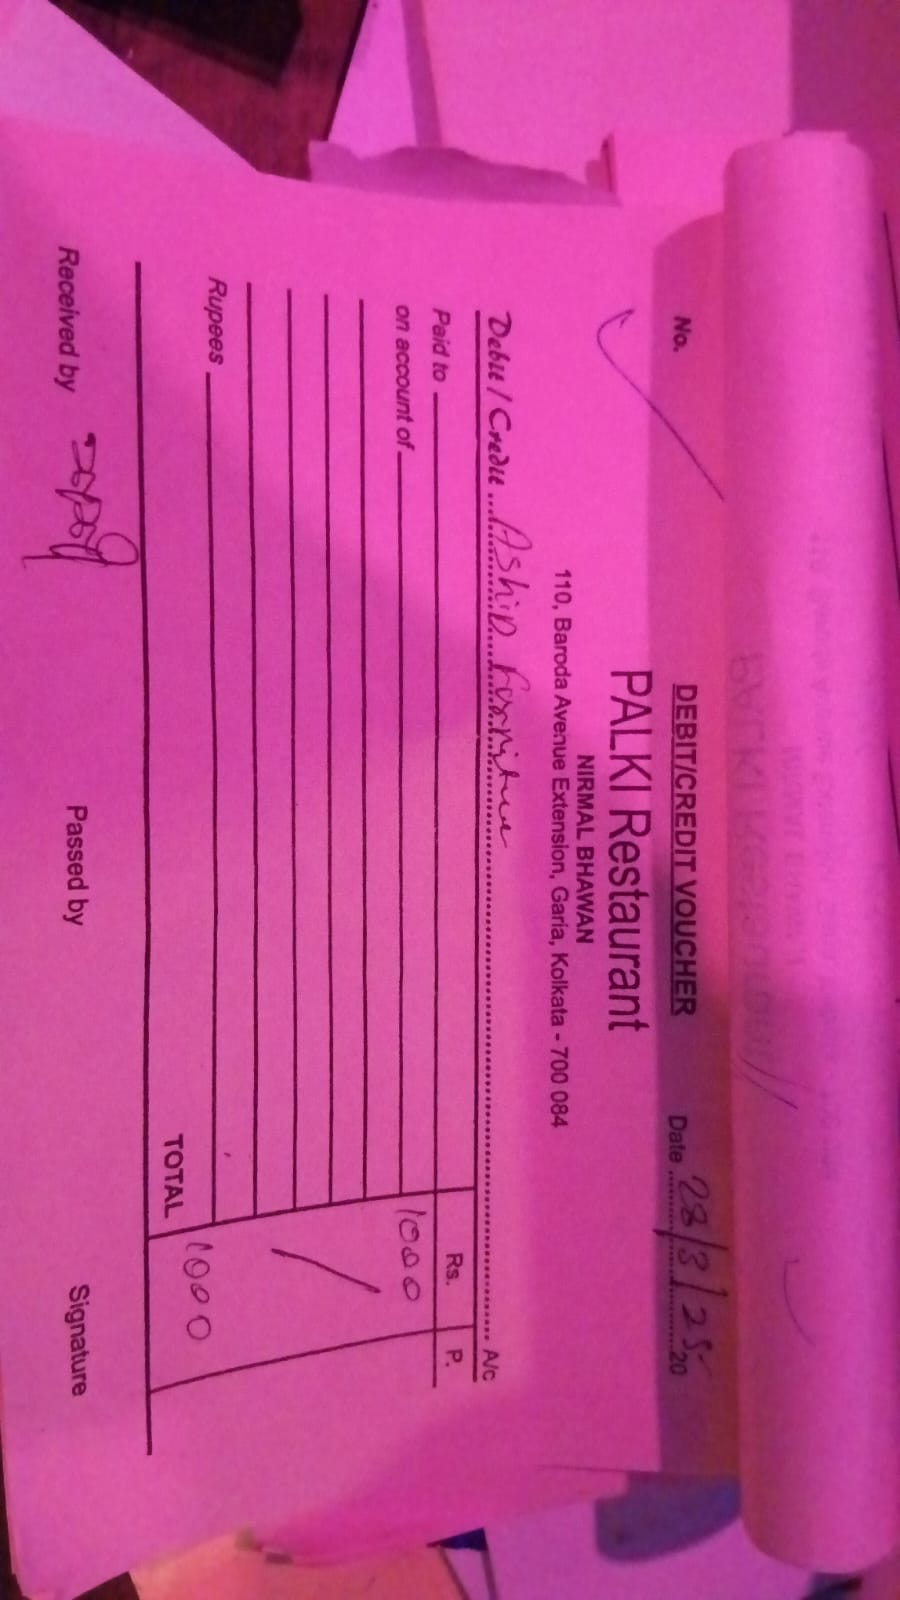 No.
DEBIT/CREDIT VOUCHER
Date 28/3/25 20
PALKI Restaurant
NIRMAL BHAWAN
110, Baroda Avenue Extension, Garia, Kolkata - 700 084
Debit / Credit Ashid A/c
Paid to Rs. P.
on account of 1000
Rupees
TOTAL 1000
Received by Passed by Signature